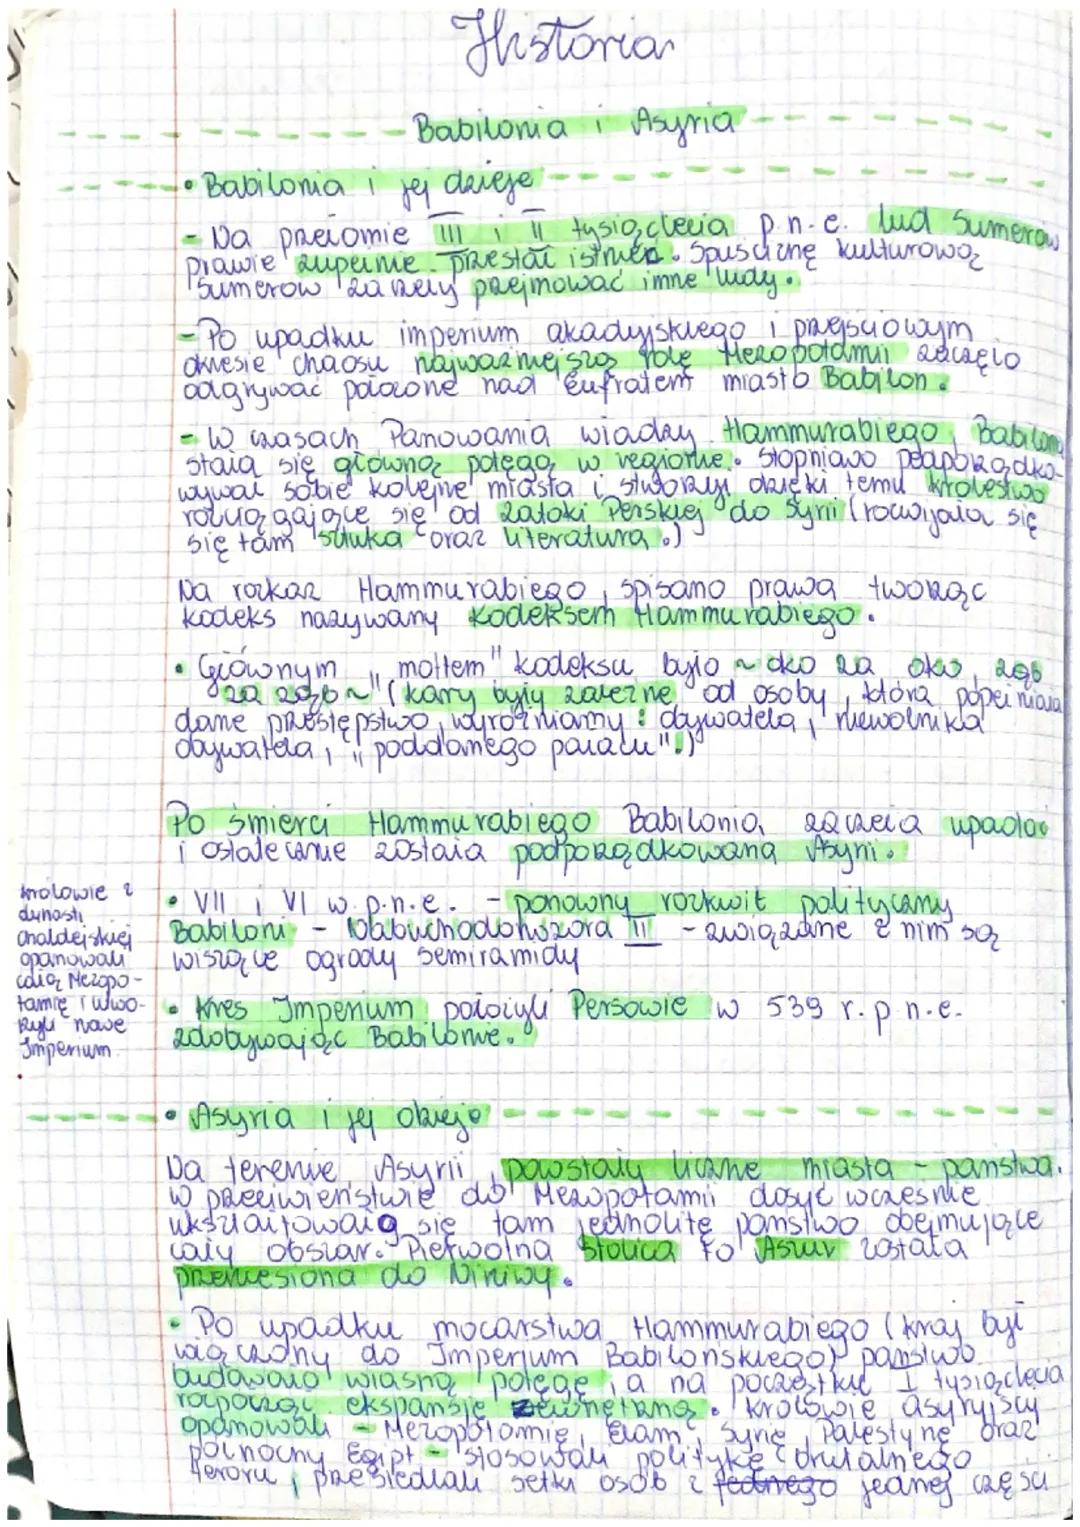 Historia
Babilonia i Asyria
• Babilonia i jej dzieje
- Na przełomie III i II tysiąclecia p.n.e. lud Sumerów
prawie zupełnie przestał istnieć. Spuściznę kulturową
Sumerów zaczęły przejmować inne ludy.
- Po upadku imperium akadyjskiego i przejściowym
okresie chaosu najważniejszą rolę Mezopotamii zaczęło
odgrywać położone nad Eufratem miasto Babilon.
- W czasach Panowania władzy Hammurabiego, Babilonia
stała się główną potęgą w regionie. Stopniowo podporządko-
wywał sobie kolejne miasta i stworzył dzięki temu królestwo
rozciągające się od Zatoki Perskiej do Syrii (rozwijała się
się tam sztuka oraz literatura.)
Na rozkaz Hammurabiego, spisano prawa tworząc
kodeks nazywany Kodeksem Hammurabiego.
• Głównym "mottem" kodeksu było ~ oko za oko, ząb
za ząb ~" (kary były zależne od osoby, która popełniała
dane przestępstwo, wyróżniamy: obywatela, niewolnika
obywatela, "poddanego pałacu".)
Po śmierci Hammurabiego Babilonia zaczęła upadać
i ostatecznie została podporządkowana Asyrii.
• VII i VI w.p.n.e. - ponowny rozkwit polityczny
Babiloni - Nabuchodonozora III - związane z nim są
wiszące ogrody Semiramidy
królowie z
dynasti
chaldejskiej
opanowali
całą Mezopo-
tamię i utwo-
rzyli nowe
Imperium.
• Kres Imperium położyli Persowie w 539 r.p.n.e.
zdobywając Babilonie.
• Asyria i jej dzieje
Na terenie Asyrii powstały liczne miasta - państwa.
W przeciwieństwie do Mezopotamii dosyć wcześnie
ukształtowało się tam jednolite państwo obejmujące
cały obszar. Pierwotna stolica to Aszur została
przeniesiona do Niniwy.
• Po upadku mocarstwa Hammurabiego (kraj był
włączony do Imperium Babilońskiego) państwo
budowało własną potęgę, a na początku I tysiąclecia
rozpoczął ekspansję zewnętrzną. Królowie asyryjscy
opanowali - Mezopotamię, Elam, Syrię, Palestynę oraz
północny Egipt - stosowali politykę brutalnego
terroru, przesiedlali setki osób z jednego jednej części